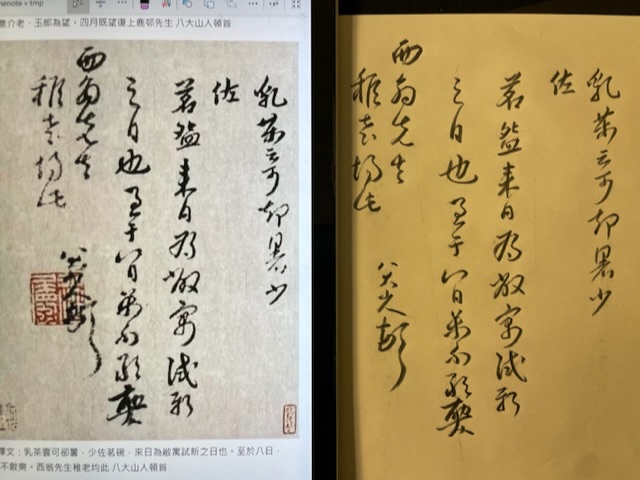 henote + tmp
意介老、玉郎為望。四月既望復上鹿邨先生 八大山人頓首
乳茶云可卻暑少
佐
茗盌来日為敝寓試新
之日也至于八日萬不敢爽
西翁先生
稚老均此
八大山人頓首
釋文：乳茶雲可卻暑、少佐茗碗、來日為敝寓試新之日也。至於八日、
不敢爽。西翁先生稚老均此 八大山人頓首
乳茶云可卻暑少
佐
茗盌来日為敝寓試新
之日也至于八日萬不敢爽
西翁先生
稚老均此
八大山人頓首